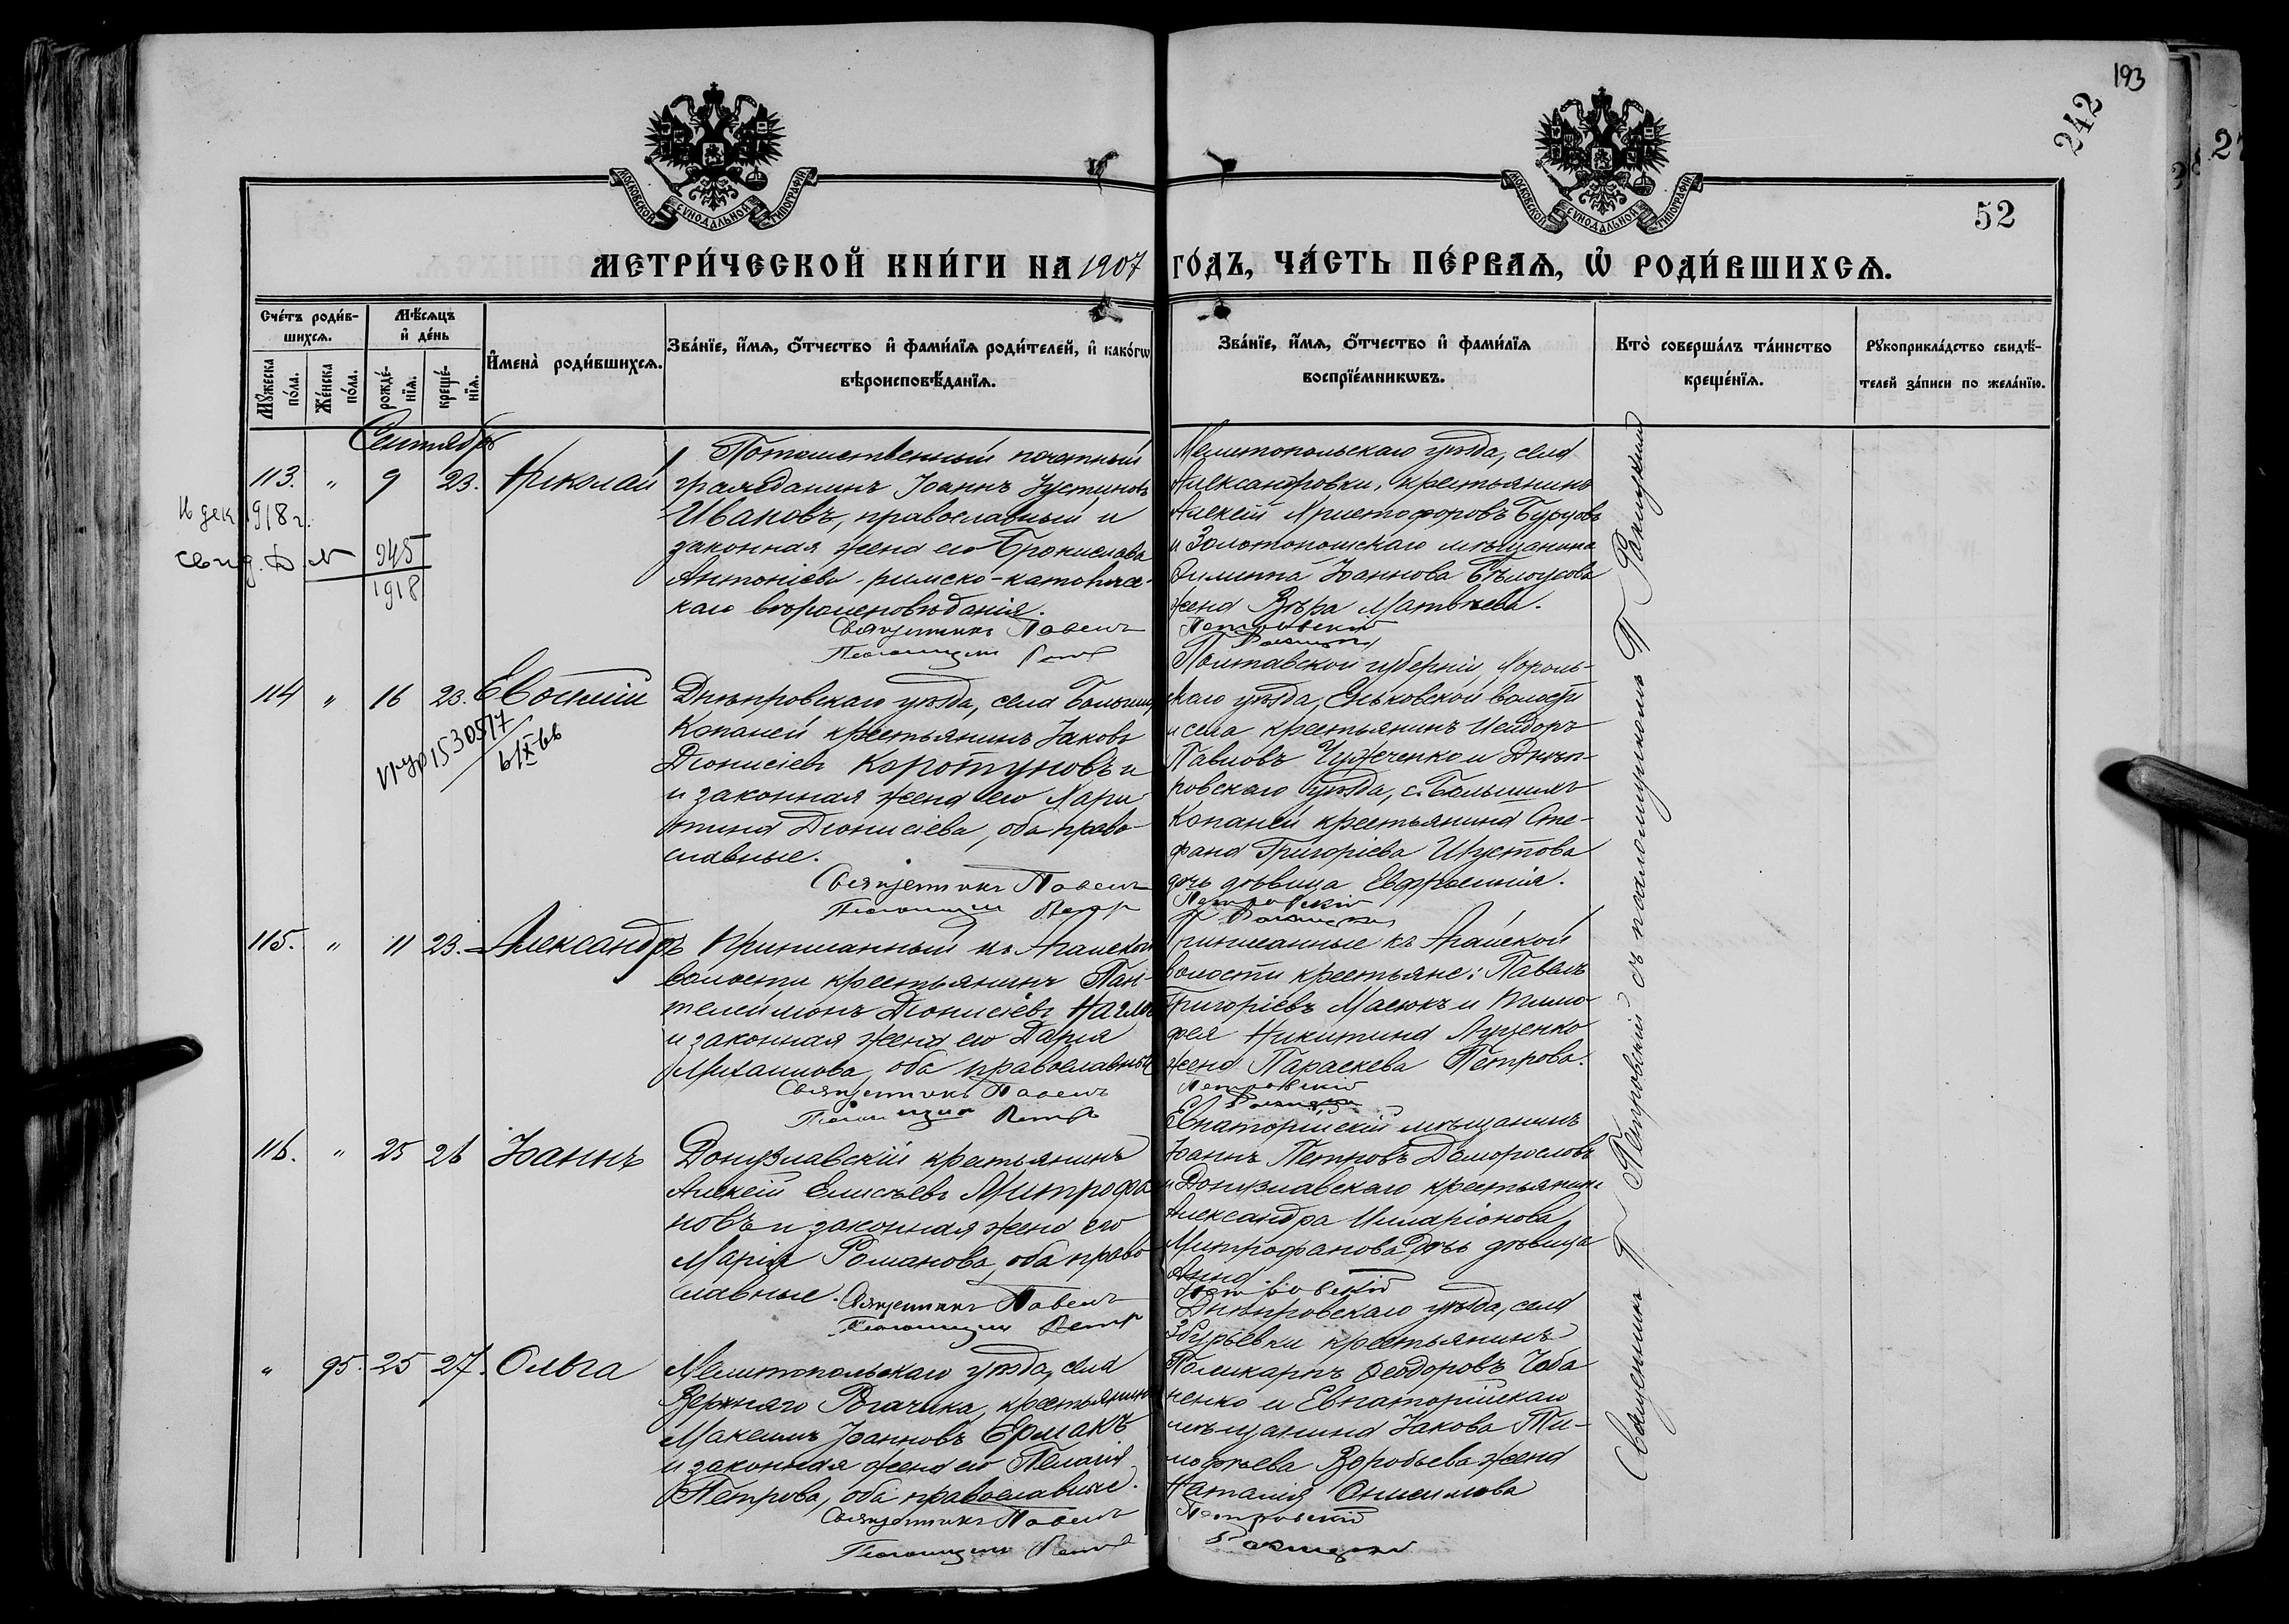 193
242
52
МОСКОВСКОЙ СУНОДАЛЬНОЙ ТИПОГРАФІИ
МОСКОВСКОЙ СУНОДАЛЬНОЙ ТИПОГРАФІИ
МЕТРИ́ЧЕСКОЙ КНИ́ГИ НА 1907 ГО́ДЪ, ЧА́СТЬ ПЕ́РВАѦ, Ѡ҆ РОДИ́ВШИХСѦ.
Сче́тъ роди́в-
шихсѧ.
Мꙋ́жеска по́ла.
Же́нска по́ла.
Мѣ́сѧцъ
и҆ де́нь
рожде́-
нїѧ.
креще́-
нїѧ.
И҆мена̀ роди́вшихсѧ.
Зва́нїе, и҆́мѧ, ѻ҆́тчество и҆ фами́лїѧ роди́телей, и҆ како́гѡ
вѣроисповѣ́данїѧ.
Зва́нїе, и҆́мѧ, ѻ҆́тчество и҆ фами́лїѧ
воспрїе́мникѡвъ.
Кто̀ соверша́лъ та́инство
креще́нїѧ.
Рꙋкоприкла́дство свидѣ́-
телей за́писи по жела́нїю.
Сентябрь
113. " 9 23. Николай
Потомственный почетный
гражданинъ Іоаннъ Іустиновъ
Иваковъ, православный и
законная жена его Бронислава
Антоніева - римско-католичес-
каго вѣроисповѣданія.
Священникъ Павелъ
Псаломщикъ Петръ
Мелитопольскаго уѣзда, села
Александровки, крестьянинъ
Алексій Христофоровъ Бурцовъ
и Золотоношскаго мѣщанина
Филиппа Іоаннова Бѣлоусова
жена Вѣра Матвѣева.
Петровскій
дек. 1918 г.
свид. №
945
1918
114 " 16 23. Евѳимій
Днѣпровскаго уѣзда, села Большихъ
Копаней крестьянинъ Іаковъ
Діонисіевъ Коротуновъ и
и законная жена его Хари-
тина Діонисіева, оба право-
славные.
Священникъ Павелъ
Псаломщикъ Петръ
Полтавской губерніи, Хороль-
скаго уѣзда, Еньковской волости
и села крестьянинъ Исидоръ
Павловъ Чужченко и Днѣп-
ровскаго уѣзда, с. Большихъ
Копаней крестьянина Сте-
фана Григоріева Шустова
дочь дѣвица Евфросинія.
Петровскій
1530517
115. " 11 23. Александръ
Приписанный къ Агайской
волости крестьянинъ Пан-
телеимонъ Діонисіевъ
и законная жена его Дарія
Михаилова, оба православные
Священникъ Павелъ
Псаломщикъ Петръ
Приписанные къ Агайской
волости крестьяне: Павелъ
Григоріевъ Масюкъ и Тимо-
фея Никитина Луценко
жена Параскева Петрова.
Петровскій
116. " 25 26 Іоаннъ
Донузлавскій крестьянинъ
Алексій Елисѣевъ Митрофа-
новъ и законная жена его
Марія Романова, оба право-
славные.
Священникъ Павелъ
Псаломщикъ Петръ
Евпаторійскій мѣщанинъ
Іоаннъ Петровъ Доморословъ
и Донузлавскаго крестьянина
Александра Иларіонова
Митрофанова дочь дѣвица
Анна.
Петровскій
" 95. 25 27. Ольга
Мелитопольскаго уѣзда, села
Верхняго Рогачика, крестьянинъ
Максимъ Іоанновъ Ермакъ
и законная жена его Пелагія
Петрова, оба православные.
Священникъ Павелъ
Псаломщикъ Петръ
Днѣпровскаго уѣзда, села
Збурьевки крестьянинъ
Поликарпъ Ѳеодоровъ Чоба-
ненко и Евпаторійскаго
мѣщанина Іакова Ти-
моѳеева Воробьева жена
Наталія Онисимова
Петровскій
Священникъ П Петровскій съ псаломщикомъ П